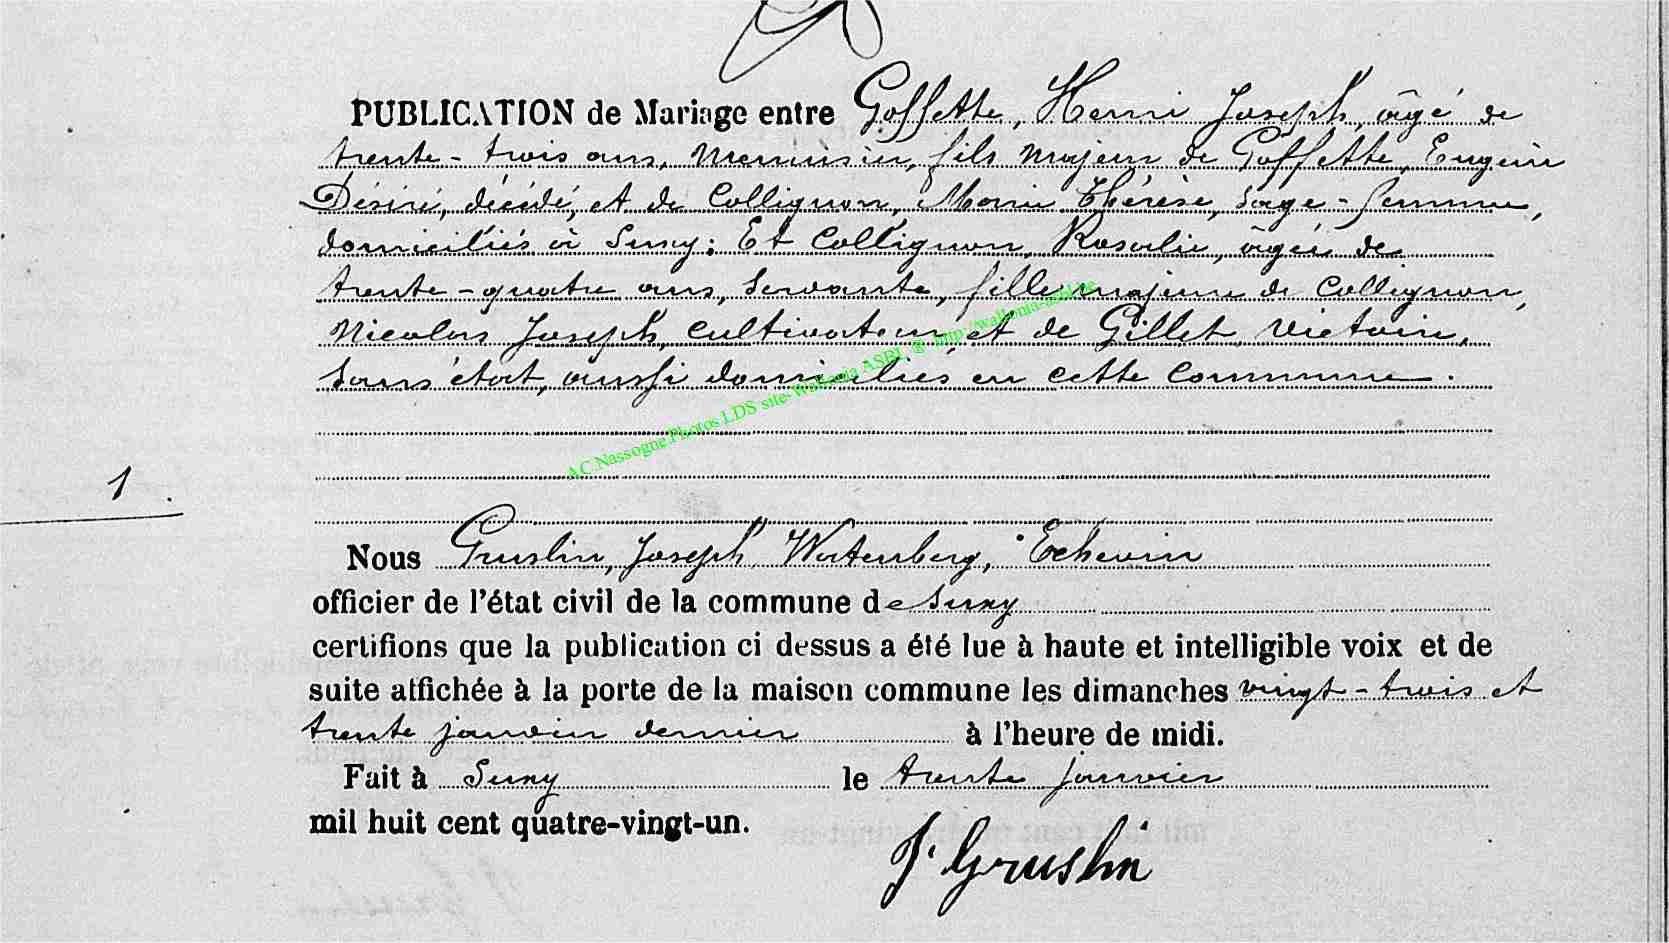 PUBLICATION de Mariage entre Goffette, Henri Joseph, âgé de
trente-trois ans, menuisier, fils majeur de Goffette, Eugène
Désiré, décédé, et de Collignon, Marie Thérèse, sage-femme,
domiciliés à Suny; Et Collignon, Rosalie, âgée de
trente-quatre ans, servante, fille majeure de Collignon,
Nicolas Joseph, cultivateur, et de Gillet, Victoire,
sans état, aussi domiciliés en cette Commune.
A.C.Nassogne.Photos LDS site-Wallonia ASBL ®
1.
Nous Gruslin, Joseph, Echevin
officier de l'état civil de la commune de Suny
certifions que la publication ci dessus a été lue à haute et intelligible voix et de
suite affichée à la porte de la maison commune les dimanches vingt-trois et
trente janvier dernier à l'heure de midi.
Fait à Suny le trente janvier
mil huit cent quatre-vingt-un.
J. Gruslin